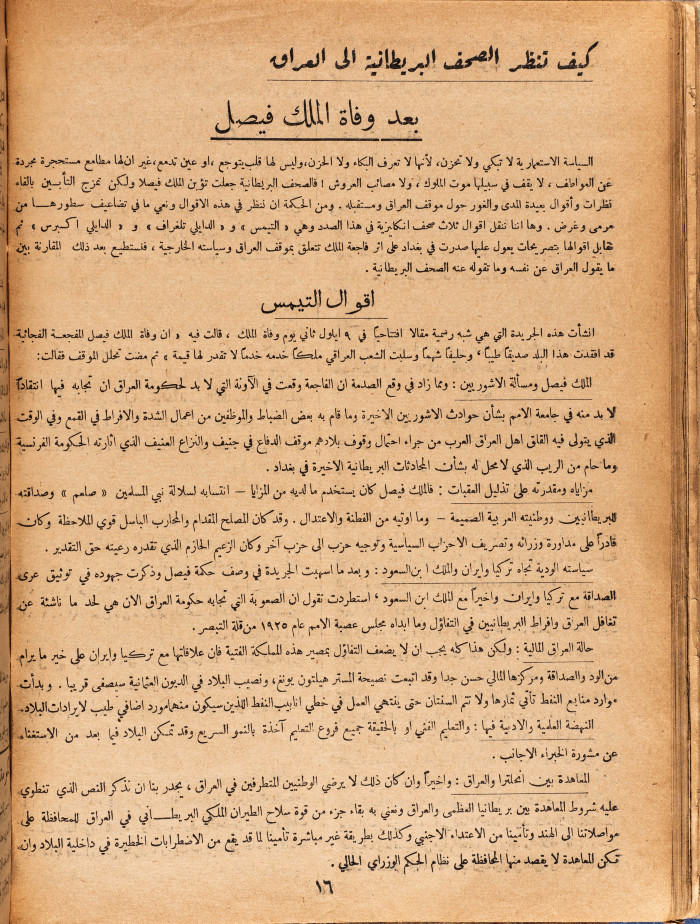 كيف تنظر الصحف البريطانية الى العراق
بعد وفاة الملك فيصل
السياسة الاستعمارية لا تبكي ولا تحزن، لأنها لا تعرف البكاء ولا الحزن، وليس لها قلب يتوجع، او عين تدمع، غير ان لها مطامع مستحجرة مجردة
عن العواطف، لا يقف في سبيلها موت الملوك، ولا مصائب العروش! فالصحف البريطانية جعلت تؤبن الملك فيصلا ولكن تمزج التأبين بالقاء
نظرات وأقوال بعيدة المدى والغور حول موقف العراق ومستقبله. ومن الحكمة ان ننظر في هذه الاقوال ونعي ما في تضاعيف سطورها من
مرمى وغرض. وها اننا ننقل اقوال ثلاث صحف انكليزية في هذا الصدد وهي « التيمس » و « الدايلي تلغراف » و « الدايلي اكسبرس » ثم
نقابل اقوالها بتصريحات يعول عليها صدرت في بغداد على اثر فاجعة الملك تتعلق بموقف العراق وسياسته الخارجية، فنستطيع بعد ذلك المقارنة بين
ما يقول العراق عن نفسه وما تقوله عنه الصحف البريطانية.
اقوال التيمس
انشأت هذه الجريدة التي هي شبه رسمية مقالا افتتاحياً في ٩ ايلول ثاني يوم وفاة الملك، قالت فيه « ان وفاة الملك فيصل المفجعة الفجائية
قد افقدت هذا البلد صديقاً طيباً، وحليفاً شهماً وسلبت الشعب العراقي ملكاً خدمه خدماً لا تقدر لها قيمة » ثم مضت تحلل الموقف فقالت:
الملك فيصل ومسألة الاشوريين: ومما زاد في وقع الصدمة ان الفاجعة وقعت في الآونة التي لا بد لحكومة العراق ان تجابه فيها انتقاداً
لا بد منه في جامعة الامم بشأن حوادث الاشوريين الاخيرة وما قام به بعض الضباط والموظفين من اعمال الشدة والافراط في القمع وفي الوقت
الذي يتولى فيه القلق اهل العراق العرب من جراء احتمال وقوف بلادهم موقف الدفاع في جنيف والنزاع العنيف الذي اثارته الحكومة الفرنسية
وما حام من الريب الذي لا محل له بشأن المحادثات البريطانية الاخيرة في بغداد.
مزاياه ومقدرته على تذليل العقبات: فالملك فيصل كان يستخدم ما لديه من المزايا – انتسابه لسلالة نبي المسلمين « صلعم » وصداقته
للبريطانيين ووطنيته العربية الصميمة – وما اوتيه من الفطنة والاعتدال. وقد كان المصلح المقدام والمحارب الباسل قوي الملاحظة وكان
قادراً على مداورة وزرائه وتصريف الاحزاب السياسية وتوجيه حزب الى حزب آخر وكان الزعيم الحازم الذي تقدره رعيته حق التقدير.
سياسته الودية تجاه تركيا وايران والملك ابن السعود: وبعد ما اسهبت الجريدة في وصف حكمة فيصل وذكرت جهوده في توثيق عرى
الصداقة مع تركيا وايران واخيراً مع الملك ابن السعود، استطردت تقول ان الصعوبة التي تجابه حكومة العراق الان هي لحد ما ناشئة عن
تغافل العراق وافراط البريطانيين في التفاؤل وما ابداه مجلس عصبة الامم عام ١٩٢٥ من قلة التبصر.
حالة العراق المالية: ولكن هذا كله يجب ان لا يضعف التفاؤل بمصير هذه المملكة الفتية فان علاقاتها مع تركيا وايران على خير ما يرام
من الود والصداقة ومركزها المالي حسن جدا وقد اتبعت نصيحة المستر هيلتون يونغ، ونصيب البلاد في الديون العثمانية سيصفى قريبا. وبدأت
موارد منابع النفط تأتي ثمارها ولا تتم السنتان حتى ينتهي العمل في خطي انابيب النفط اللذين سيكون منهما مورد اضافي طيب لايرادات البلاد.
النهضة العلمية والادبية فيها: والتعليم الفني او بالحقيقة جميع فروع التعليم آخذة بالنمو السريع وقد تتمكن البلاد فيما بعد من الاستغناء
عن مشورة الخبراء الاجانب.
المعاهدة بين انجلترا والعراق: واخيراً وان كان ذلك لا يرضي الوطنيين المتطرفين في العراق، يجدر بنا ان نذكر النص الذي تنطوي
عليه شروط المعاهدة بين بريطانيا العظمى والعراق ونعني به بقاء جزء من قوة سلاح الطيران الملكي البريطاني في العراق للمحافظة على
مواصلاتنا الى الهند وتأمينا من الاعتداء الاجنبي وكذلك بطريقة غير مباشرة تأمينا لما قد يقع من الاضطرابات الخطيرة في داخلية البلاد وان
تمكن المعاهدة لا يقصد منها المحافظة على نظام الحكم الوزراي الحالي.
١٦